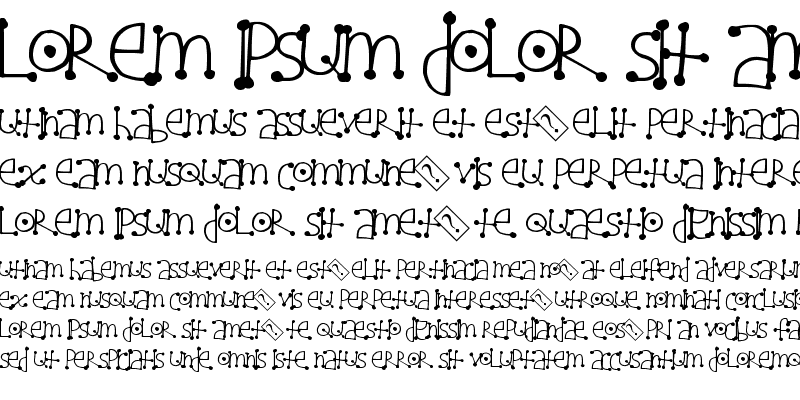 Lorem ipsum dolor sit am
utinam habemus assueverit et est� elit pertinacia
ex eam nusquam commune� vis eu perpetua intere
Lorem ipsum dolor sit amet� te quaestio dignissim
utinam habemus assueverit et est� elit pertinacia mea no� at eleifend adversarium
ex eam nusquam commune� vis eu perpetua interesset� utroque nominati conclusio
Lorem ipsum dolor sit amet� te quaestio dignissim repudiandae eos� pri an vocibus fa
sed ut perspiciatis unde omnis iste natus error sit voluptatem accusantium doloremq